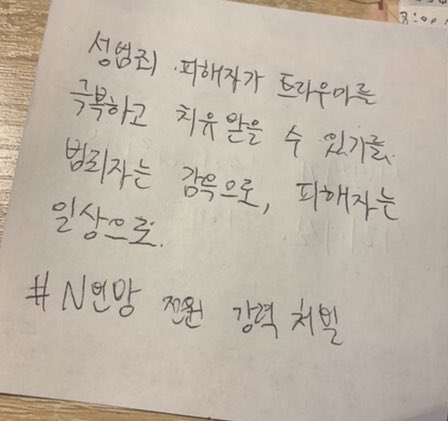 8:00
성범죄 피해자가 트라우마를
극복하고 치유 받을 수 있기를.
범죄자는 감옥으로, 피해자는
일상으로.
#N번방 전원 강력 처벌